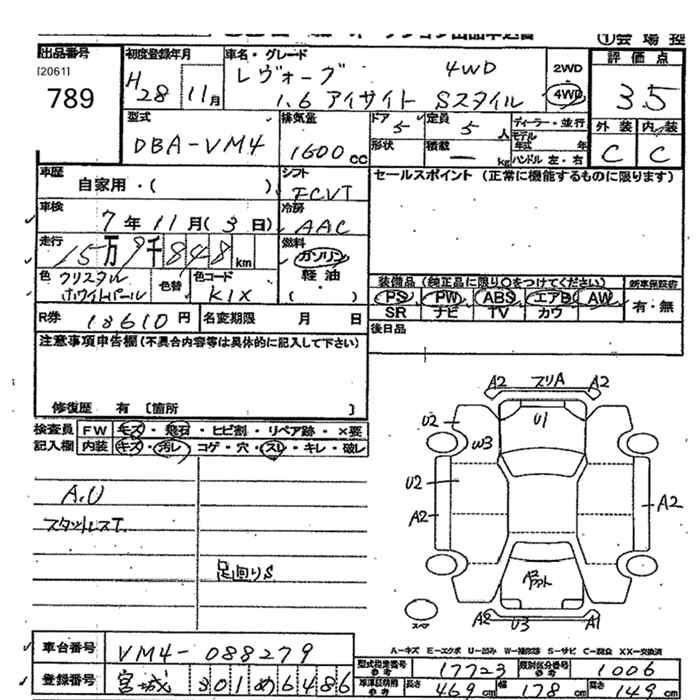 ①会場控
出品番号
[2061]
789
初度登録年月
H28 11月
車名・グレード
レヴォーグ 4WD
1.6 アイサイト Sスタイル
2WD
4WD
評価点
3.5
外装 内装
C C
型式
DBA-VM4
排気量
1600 CC
ドア 5
定員 5人
形状
積載 ー kg
ディーラー・並行
モデル年式 年
ハンドル 左・右
車歴
自家用・( )
シフト
FCVT
セールスポイント (正常に機能するものに限ります)
車検
7年11月(3日)
冷房
AAC
走行
15万9千848km
燃料
ガソリン
軽油
( )
色
クリスタル
ホワイトパール
色替
色コード
K1X
装備品 (純正品に限り○をつけてください)
新車保証書
PS PW ABS エアB AW
有・無
SR ナビ TV カワ
R券 18610円
名変期限 月 日
後日品
注意事項申告欄(不具合内容等は具体的に記入して下さい)
修復歴 有 〔箇所 〕
検査員 FW キズ・飛石・ヒビ割・リペア跡・×要
記入欄 内装 キズ・汚レ・コゲ・穴・スレ・キレ・破レ
A.U
スタットレスT.
足回りS
A2 スリA A2
U2
W3
U1
U2
A2
A2
A2 U3 A1
スペア
A-キズ E-エクボ U-凹み W-補修跡 S-サビ C-腐食 XX-交換済
車台番号
VM4-088279
登録番号
宮城 301 め 6486
型式指定番号 参考
17723
類別区分番号 参考
1006
車検証明 参考
長さ 469cm 幅 178cm 高さ 149cm